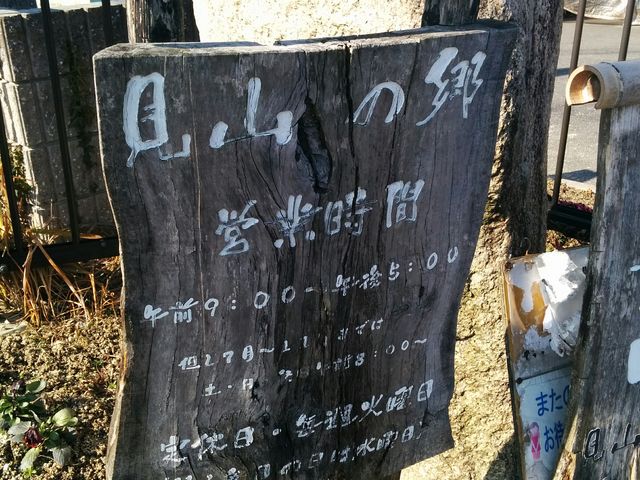 見山の郷
営業時間
午前9：00～午後5：00
但し7月～11月までは
土・日 午前8：00～
定休日・毎週火曜日
の日は水曜日
また
お待
見山